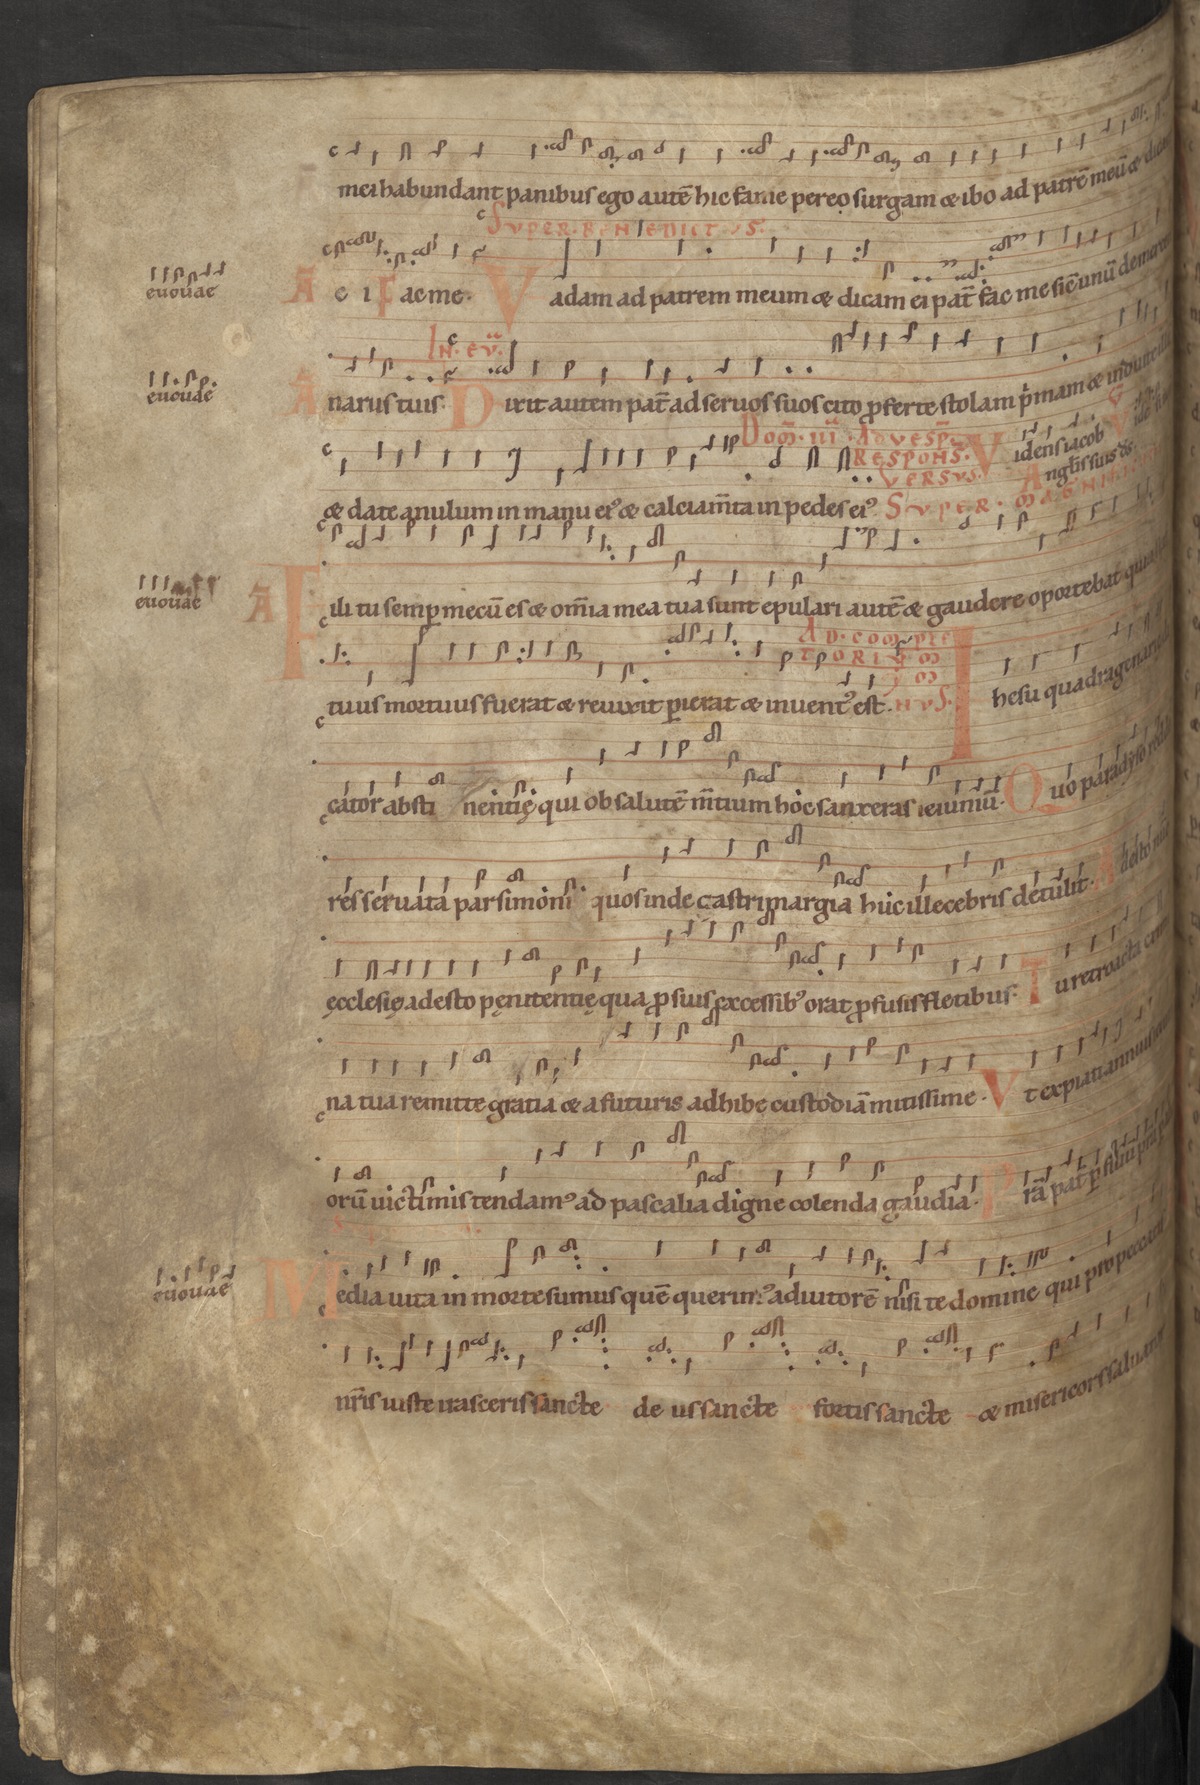 mei habundant panibus ego autē hic fame pereo surgam & ibo ad patrē meū & dicā
SVPER BENEDICTVS
euouae Ā e i F ac me. V adam ad patrem meum & dicam ei pat̄ fac me sic̄ unū de merce
IN. EV̄.
euouae Ā narus tuis. D ixit autem pat̄ ad seruos suos cito ꝓferte stolam p̄mam & induite illū
DOM̄. III. AD VESP̄.
RESPONS̄. V idens iacob
VERSVS. A nglis suis ds̄
& date anulum in manu ei᾿ & calciam̄ta in pedes ei᾿ SVPER. MAGNIFICAT
euouae Ā F ili tu semꝑ mecū es & om̄ia mea tua sunt epulari autē & gaudere oportebat quia
AD. COMPLE
TORIVM
YM
NVS.
tuus mortuus fuerat & reuixit ꝑierat & inuent᾿ est. I hesu quadragenarie di
cator absti nentię qui ob salutē m̄tium hoc sanxeras ieiuniū. Q uo paradyso redde
res seruata parsimoni quos inde castrimargia huc illecebris detulit. A desto nunc
ęcclesię adesto pęnitentię qua ꝓ suis excessib᾿ orat ꝓfusis fletibus. T u retroacta crimi
na tua remitte gratia & a futuris adhibe custodiā mitissime. V t expiati annuis ieiuni
orū uictimis tendam᾿ ad pascalia digne colenda gaudia. P rā pat̄ ꝑ filiū
euouae M edia uita in morte sumus quē querim᾿ adiutorē nisi te domine qui pro peccatis
nr̄is iuste irasceris sancte de us sancte fortis sancte & misericors saluator